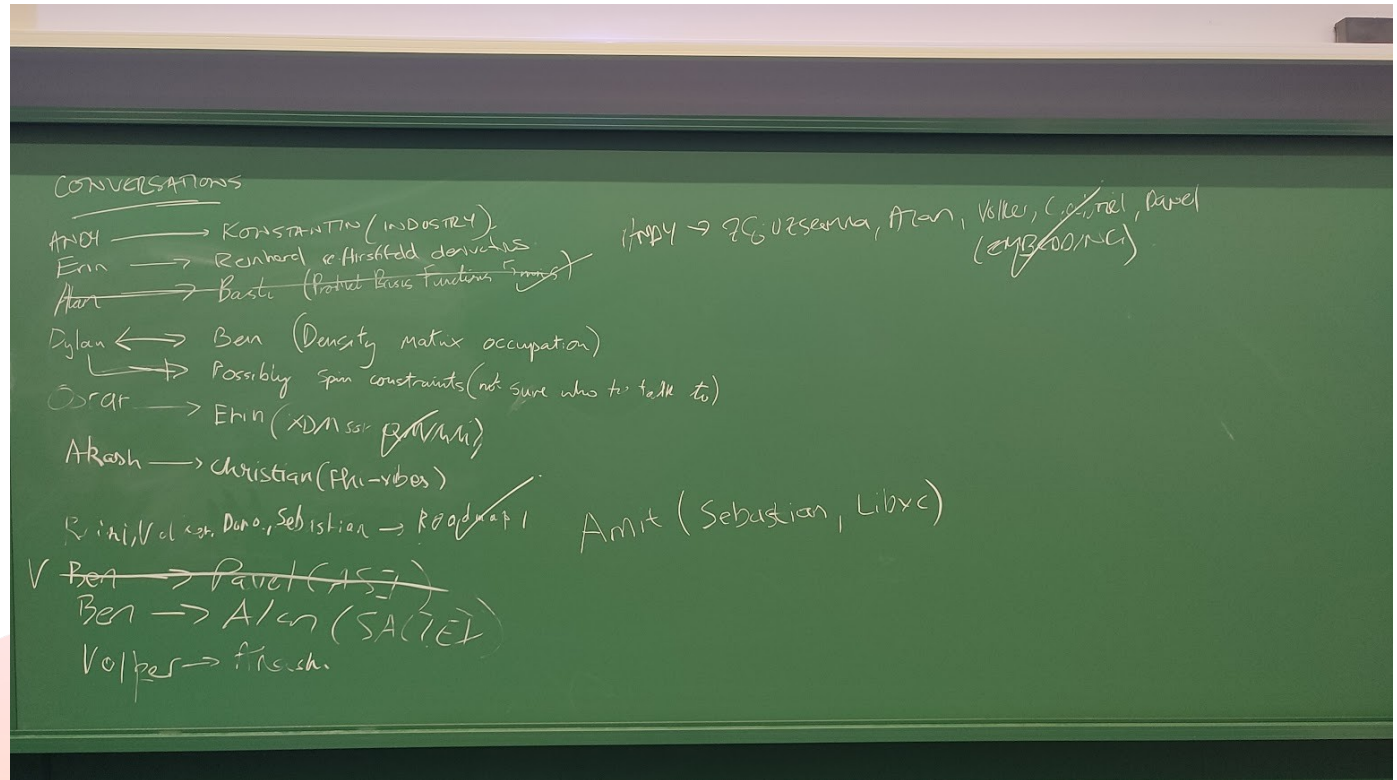 CONVERSATIONS
ANDY → KONSTANTIN (INDUSTRY)
Erin → Reinhard re: Hirshfeld derivatives
Alan → Basti (Product Basis Functions
Dylan ↔ Ben (Density matrix occupation)
→ Possibly spin constraints (not sure who to talk to)
Oscar → Erin (XDM
Akash → Christian (FHI-vibes)
Sebastian → Roadmap 1
V Ben → Pavel (ASI)
Ben → Alan
Volker → Akash.
ANDY → Alan, Volker, Pavel
(EMBEDDING)
Amit (Sebastian, Libxc)